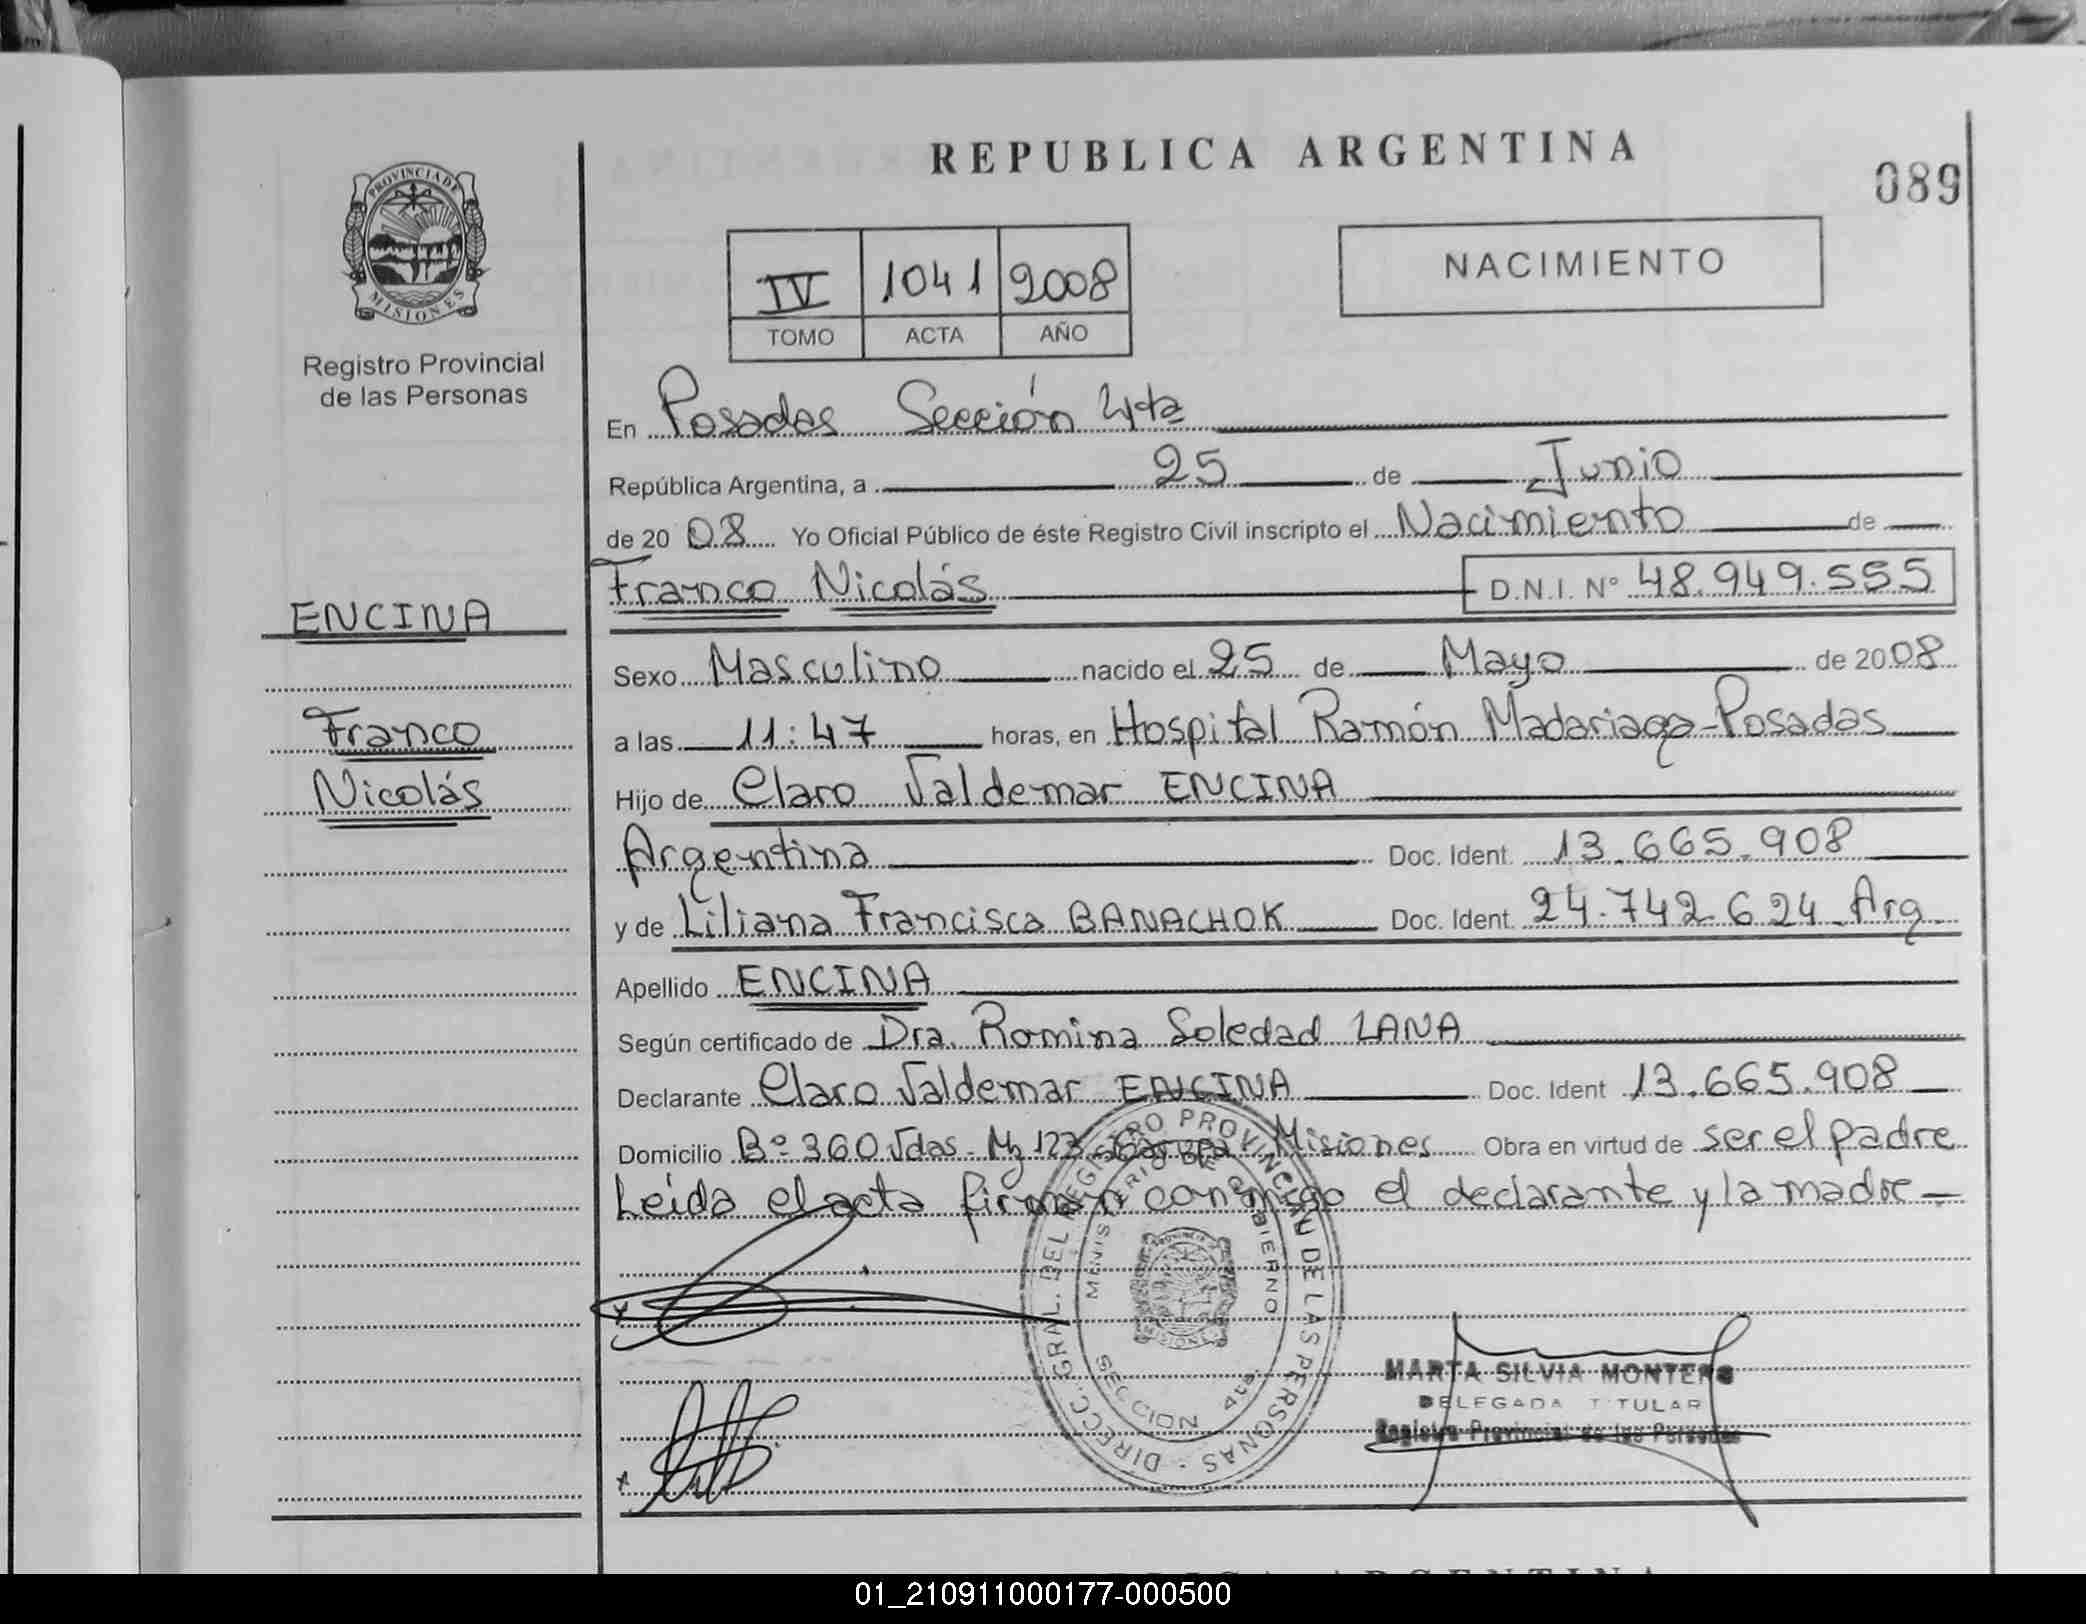 REPUBLICA ARGENTINA
089
PROVINCIA DE
MISIONES
Registro Provincial
de las Personas
IV 1041 2008
TOMO ACTA AÑO
NACIMIENTO
En Posadas Sección 4ta
República Argentina, a 25 de Junio
de 20 08 Yo Oficial Público de éste Registro Civil inscripto el Nacimiento de
Franco Nicolás D.N.I. Nº 48.949.555
ENCINA
Franco
Nicolás
Sexo Masculino nacido el 25 de Mayo de 20 08
a las 11:47 horas, en Hospital Ramón Madariaga-Posadas
Hijo de Claro Valdemar ENCINA
Argentina Doc. Ident. 13.665.908
y de Liliana Francisca BANACHOK Doc. Ident. 24.742.624 Arg
Apellido ENCINA
Según certificado de Dra. Romina Soledad LANA
Declarante Claro Valdemar ENCINA Doc. Ident 13.665.908
Domicilio Bº 360 Vdas - Mz 123 Misiones Obra en virtud de ser el padre
Leída el acta firman conmigo el declarante y la madre
DIRECC. GRAL. DEL REGISTRO PROVINCIAL DE LAS PERSONAS
MINISTERIO DE GOBIERNO
SECCION 4ta.
MISIONES
MARTA SILVIA MONTERO
DELEGADA TITULAR
Registro Provincial de las Personas
01_210911000177-000500